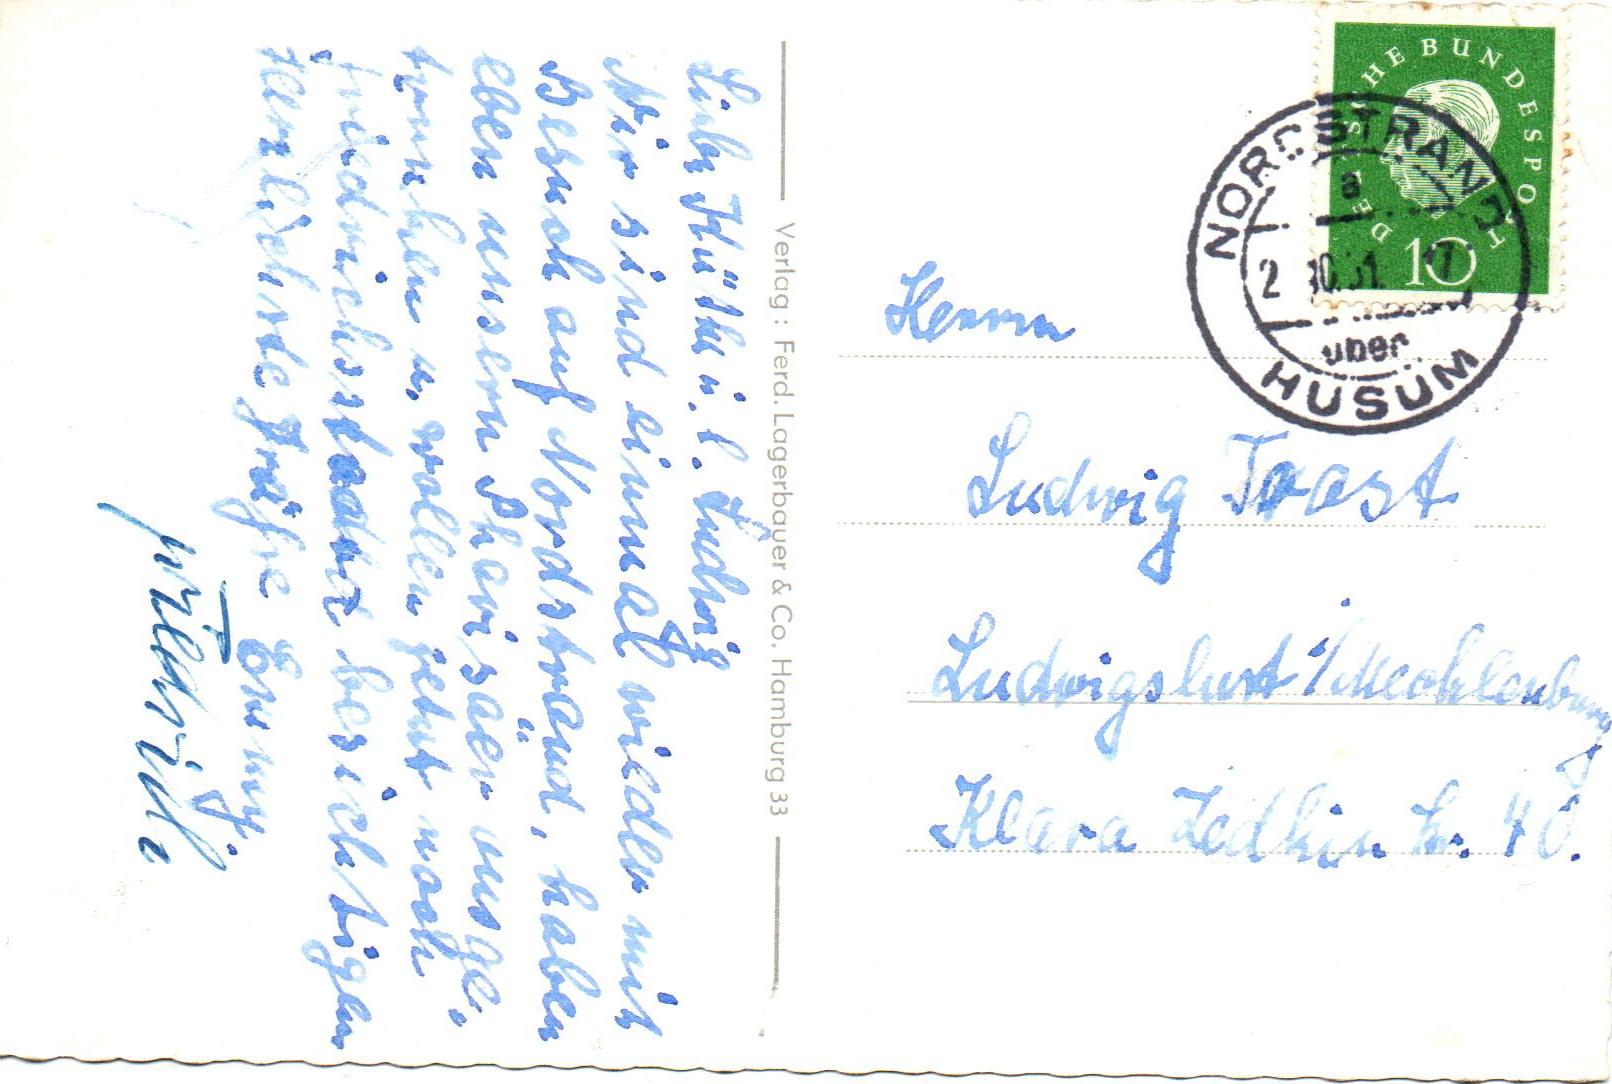 Liebe Käthe u. l. Ludwig
Wir sind einmal wieder mit
Besuch auf Nordstrand, haben
eben unsern Pharisäer ausge-
trunken u. wollen jetzt noch
Friedrichsstadt besichtigen
Herzlichste Grüße Emmy.
Verlag: Ferd. Lagerbauer & Co. Hamburg 33
DEUTSCHE BUNDESPOST
10
NORDSTRAND
a
über
HUSUM
Herrn
Ludwig Toast
Ludwigslust i/Mecklenburg
Klara Zedkin Str. 40.